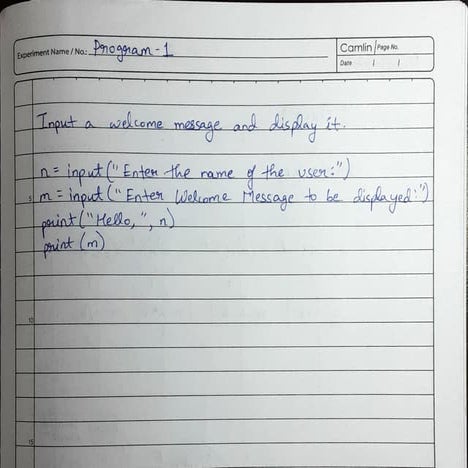 Experiment Name / No.: Program - 1
Camlin Page No.
Date / /
Input a welcome message and display it.
n = input("Enter the name of the user:")
5 m = input("Enter Welcome Message to be displayed:")
print("Hello,", n)
print (m)
10
15